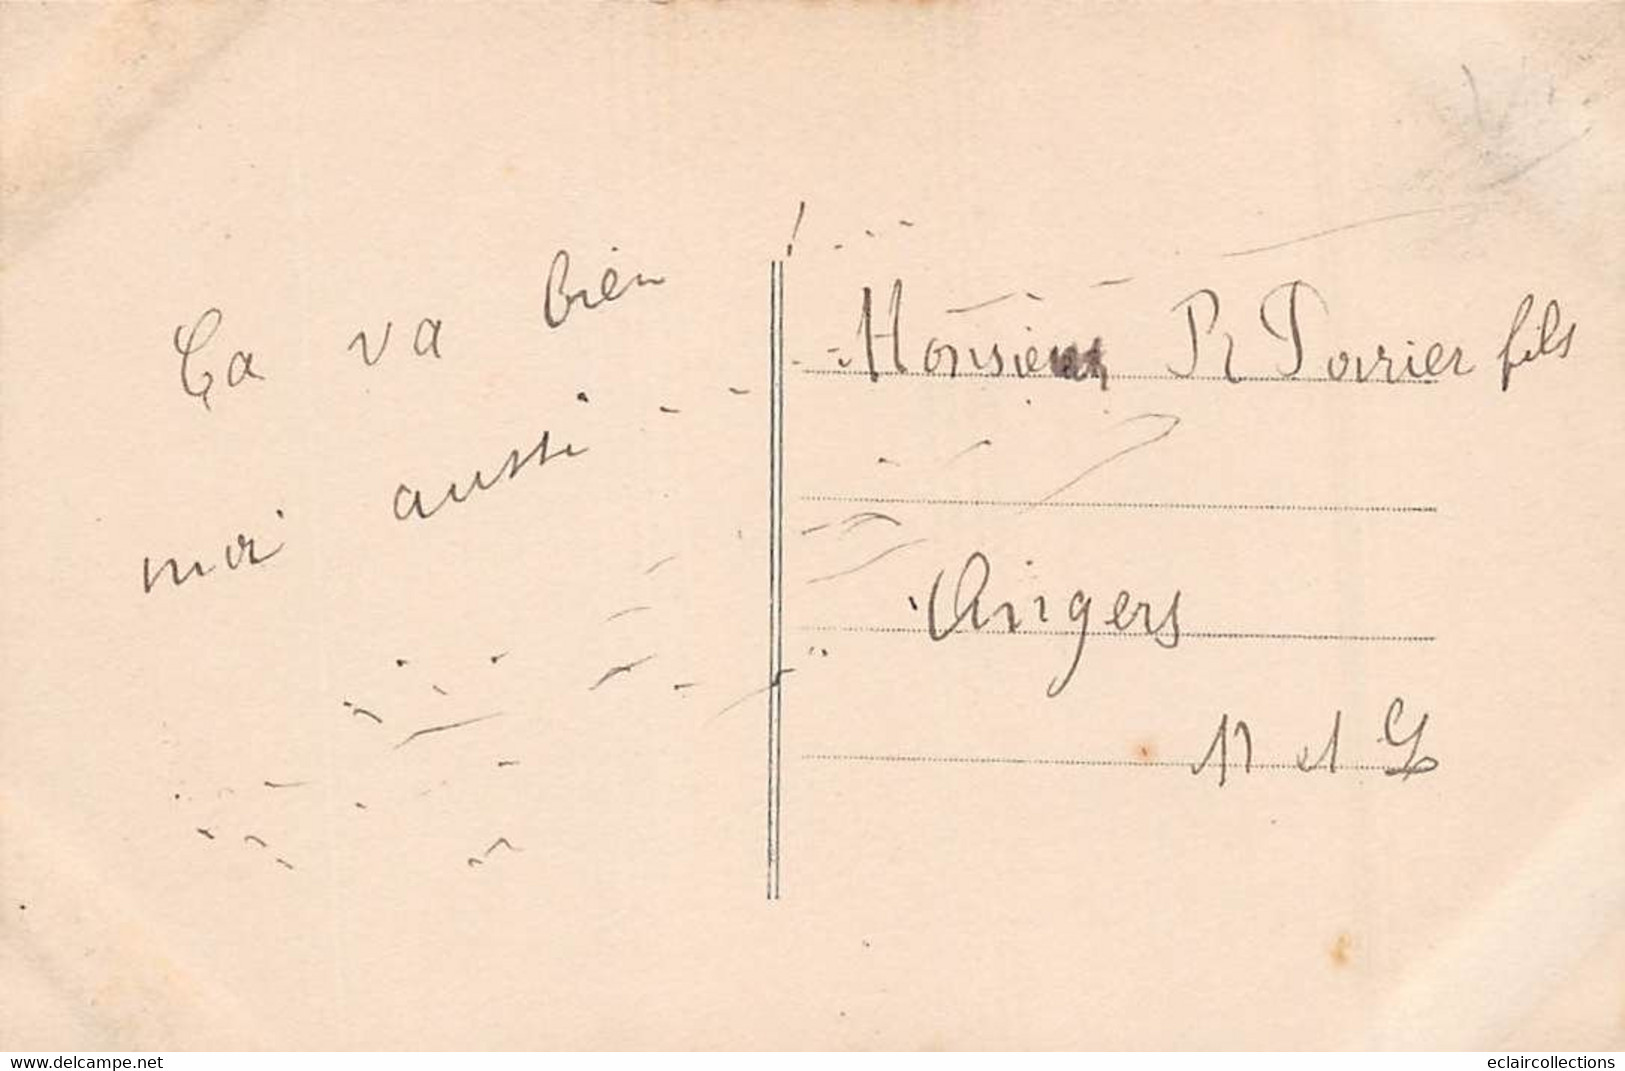 Ça va bien
moi aussi
Monsieur R Poirier fils
Angers
M et L
www.delcampe.net
eclaircollections